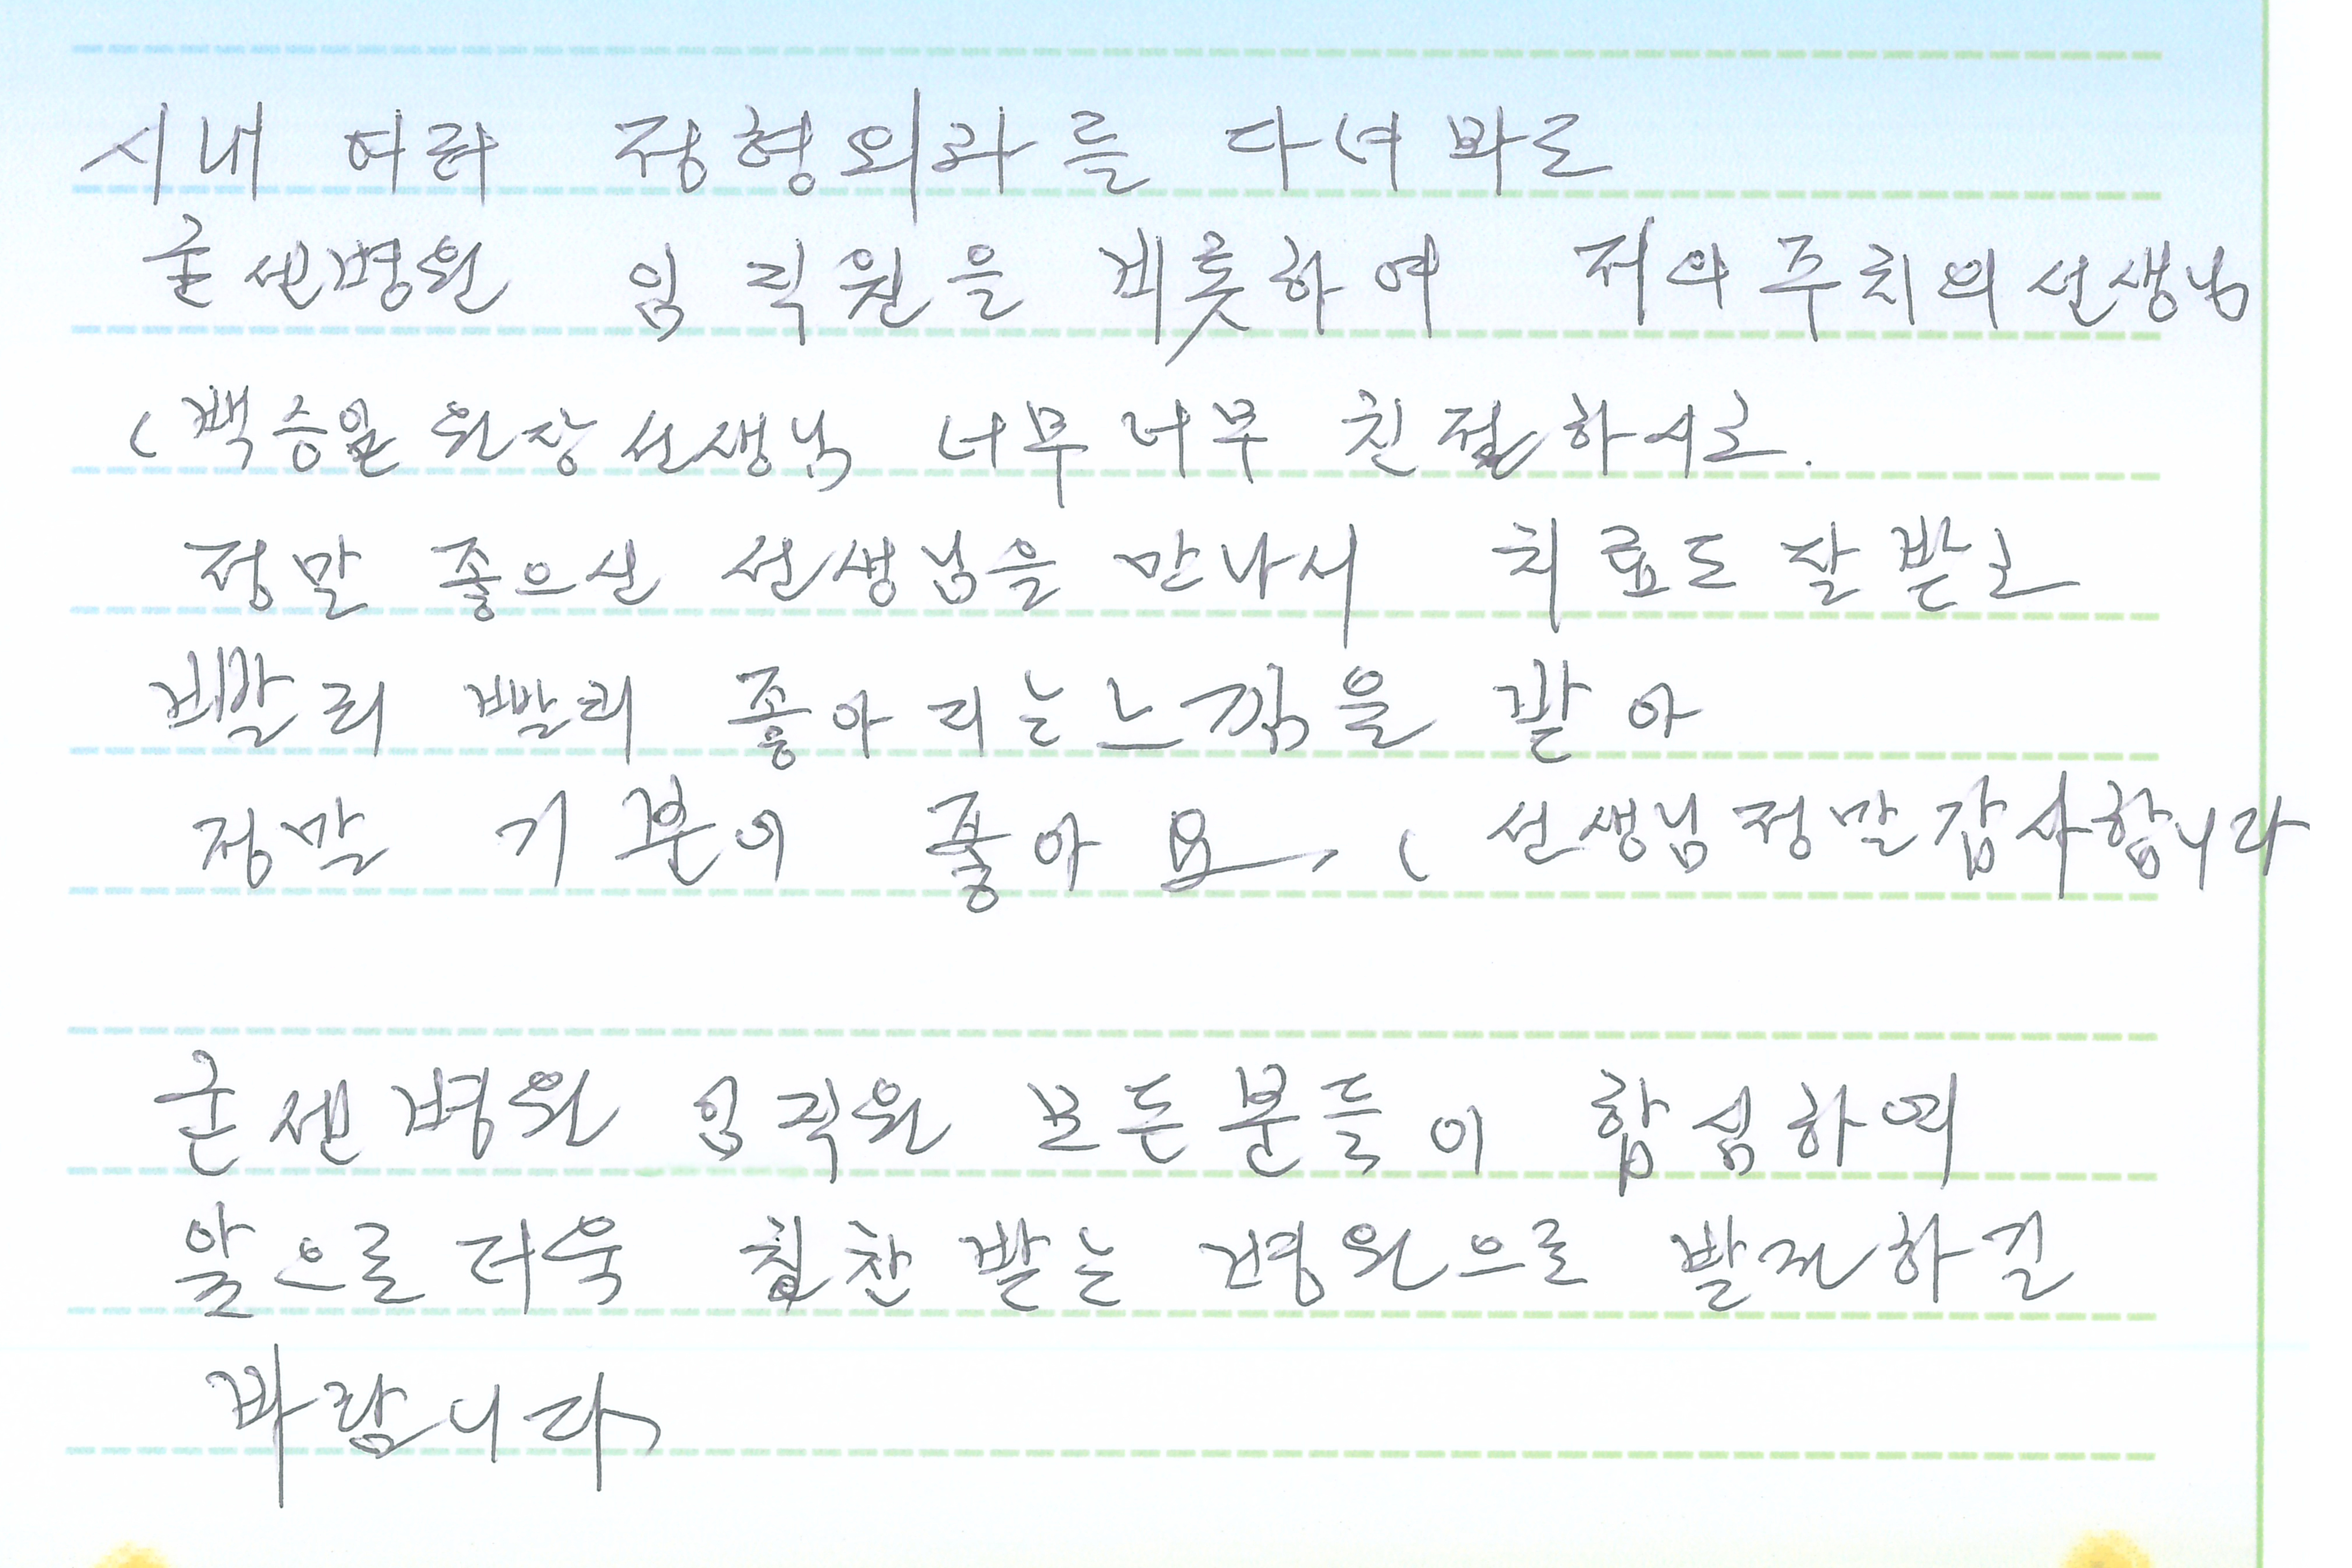 시내 여러 정형외과를 다녀 바도
굳센병원 임 직원을 비롯하여 저의 주치의 선생님
( 백승일 원장 선생님 너무 너무 친절하시고.
정말 좋으신 선생님을 만나서 치료도 잘 받고
빨리 빨리 좋아 지는 느낌을 받아
정말 기분이 좋아요, ( 선생님 정말 감사합니다
굳센병원 임직원 모든분들이 합심하여
앞으로 더욱 칭찬 받는 병원으로 발전하길
바랍니다,